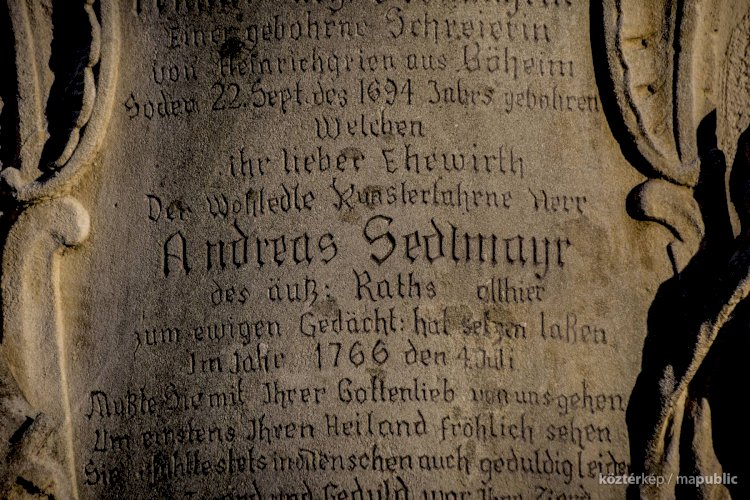 Einer gebohrne Schreierin
von Heinrichgrien aus Böheim
So den 22. Sept. des 1694 Jahrs gebohren
Welchen
ihr lieber Ehewirth
Der Wohledle Kunsterfahrne Herr
Andreas Sedlmayr
des äuß: Raths allhier
zum ewigen Gedächt: hat setzen laßen
Im Jahr 1766 den 4. Juli
Mußte Sie mit Ihrer Gottenlieb von uns gehen
Um einstens Ihren Heiland fröhlich sehen
Sie stets in Menschen auch geduldig leiden
und Geduld war Ihre
köztérkép / mapublic